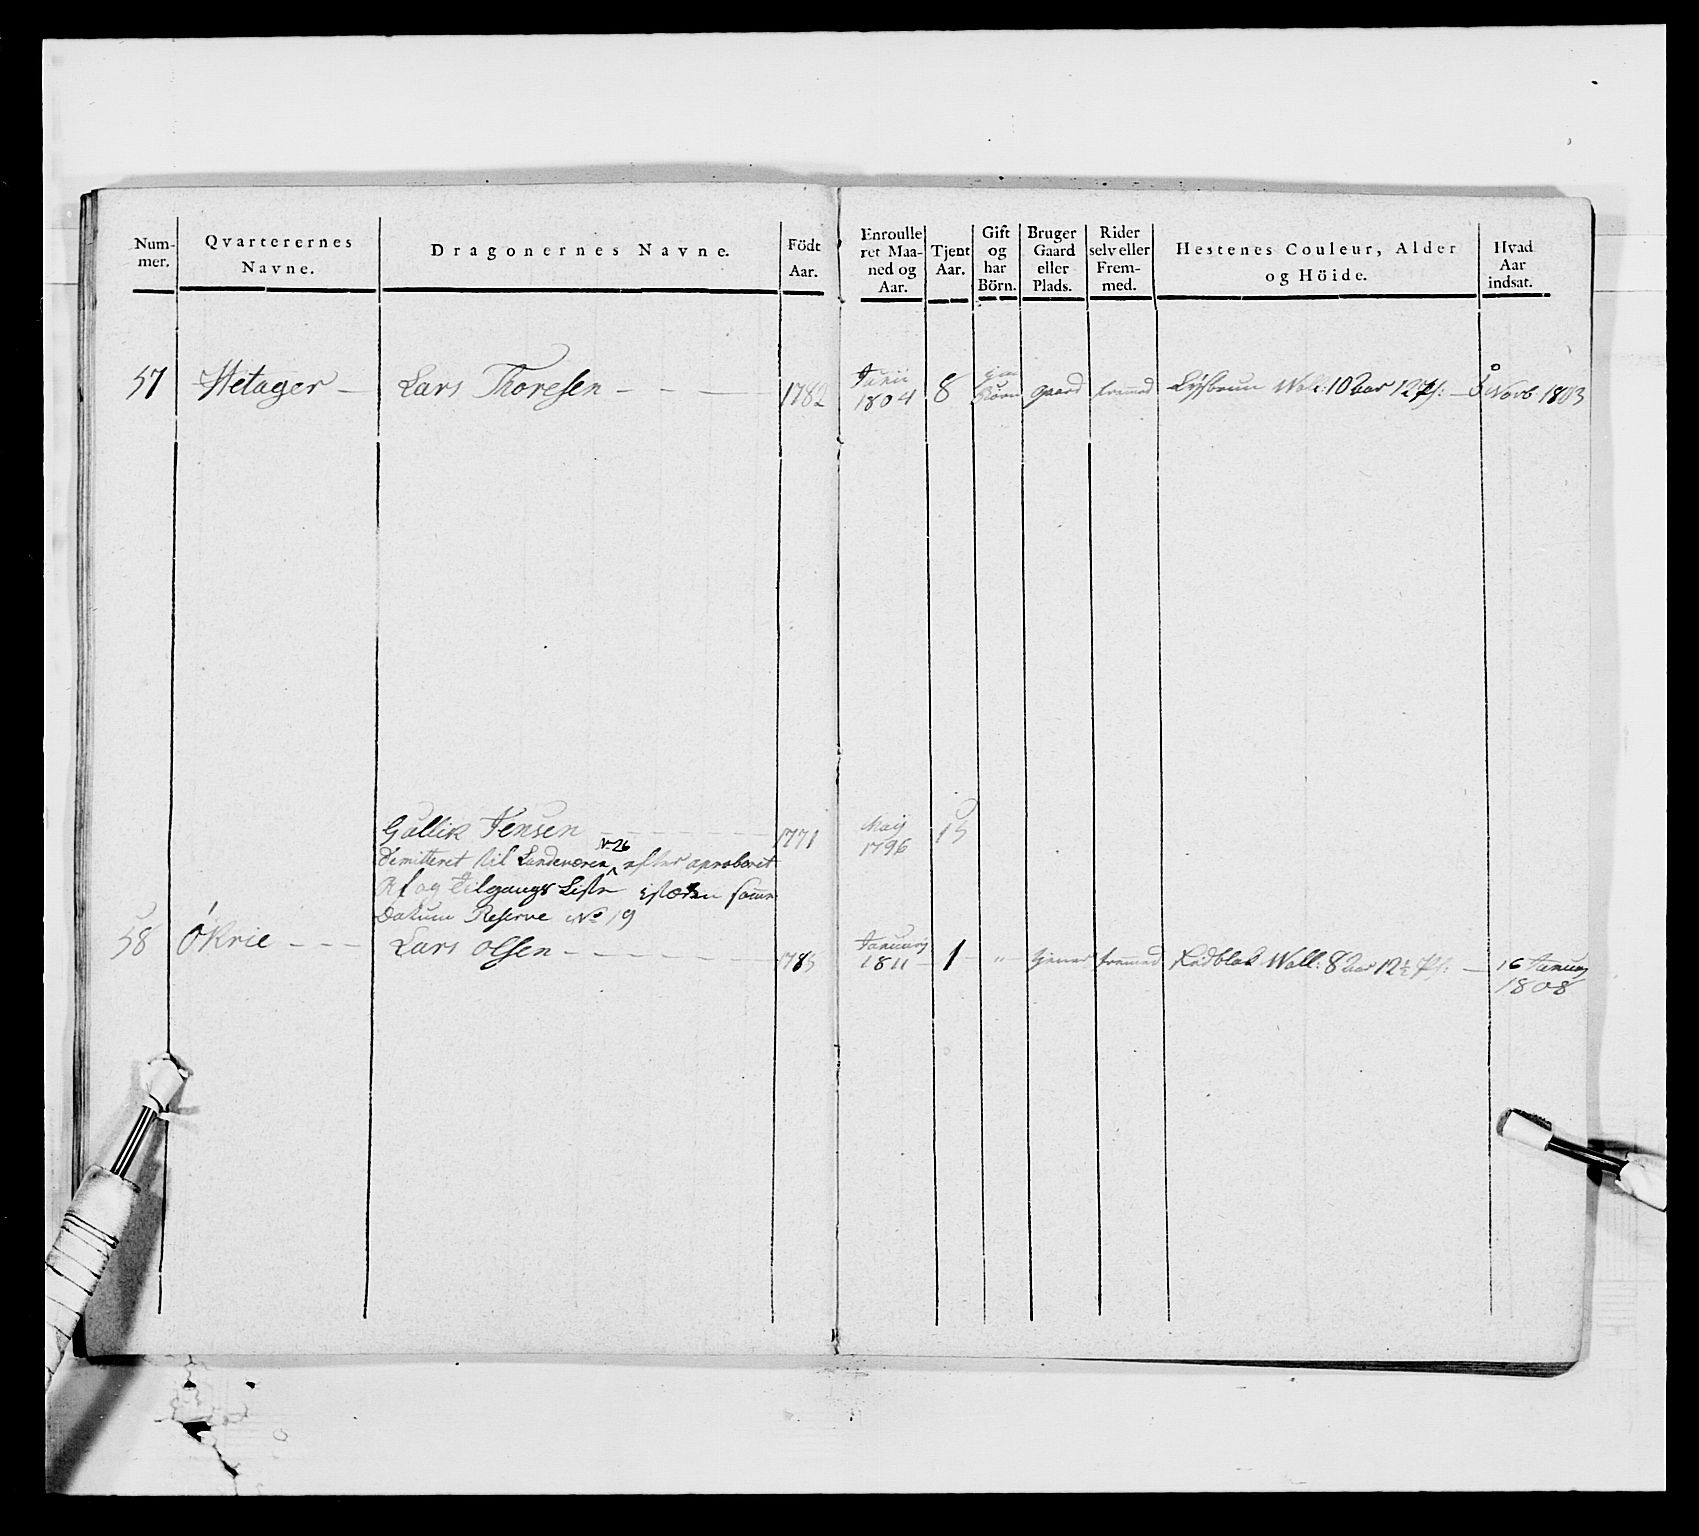 Num-
mer.
Qvarterernes
Navne.
Dragonernes Navne.
Födt
Aar.
Enroulle
ret Maa-
ned og
Aar.
Tjent
Aar.
Gift
og
har
Börn.
Bruger
Gaard
eller
Plads.
Rider
selv eller
Frem-
med.
Hestenes Couleur, Alder
og Höide.
Hvad
Aar
indsat.
57 Hetager — Lars Thoresen — — — — 1782 Junii 1804 8 Börn gaard fremed Lysbrun Wall: 10 Aar 12 Qt: — Novb 1803
Gullik Jensen — — — — 1771 Maij 1796 15
Demitteret til Landeværn No 26 efter aproberet
Af og Tilgangs Liste istæden samme
Datum Reserve No 19
58 Økrie — — — Lars Olsen — — — — 1785 Januarij 1811 — 1 — " — tjener fremmed Rødblak Wall: 8 Aar 12½ Qt: — 16 Januarj
1808